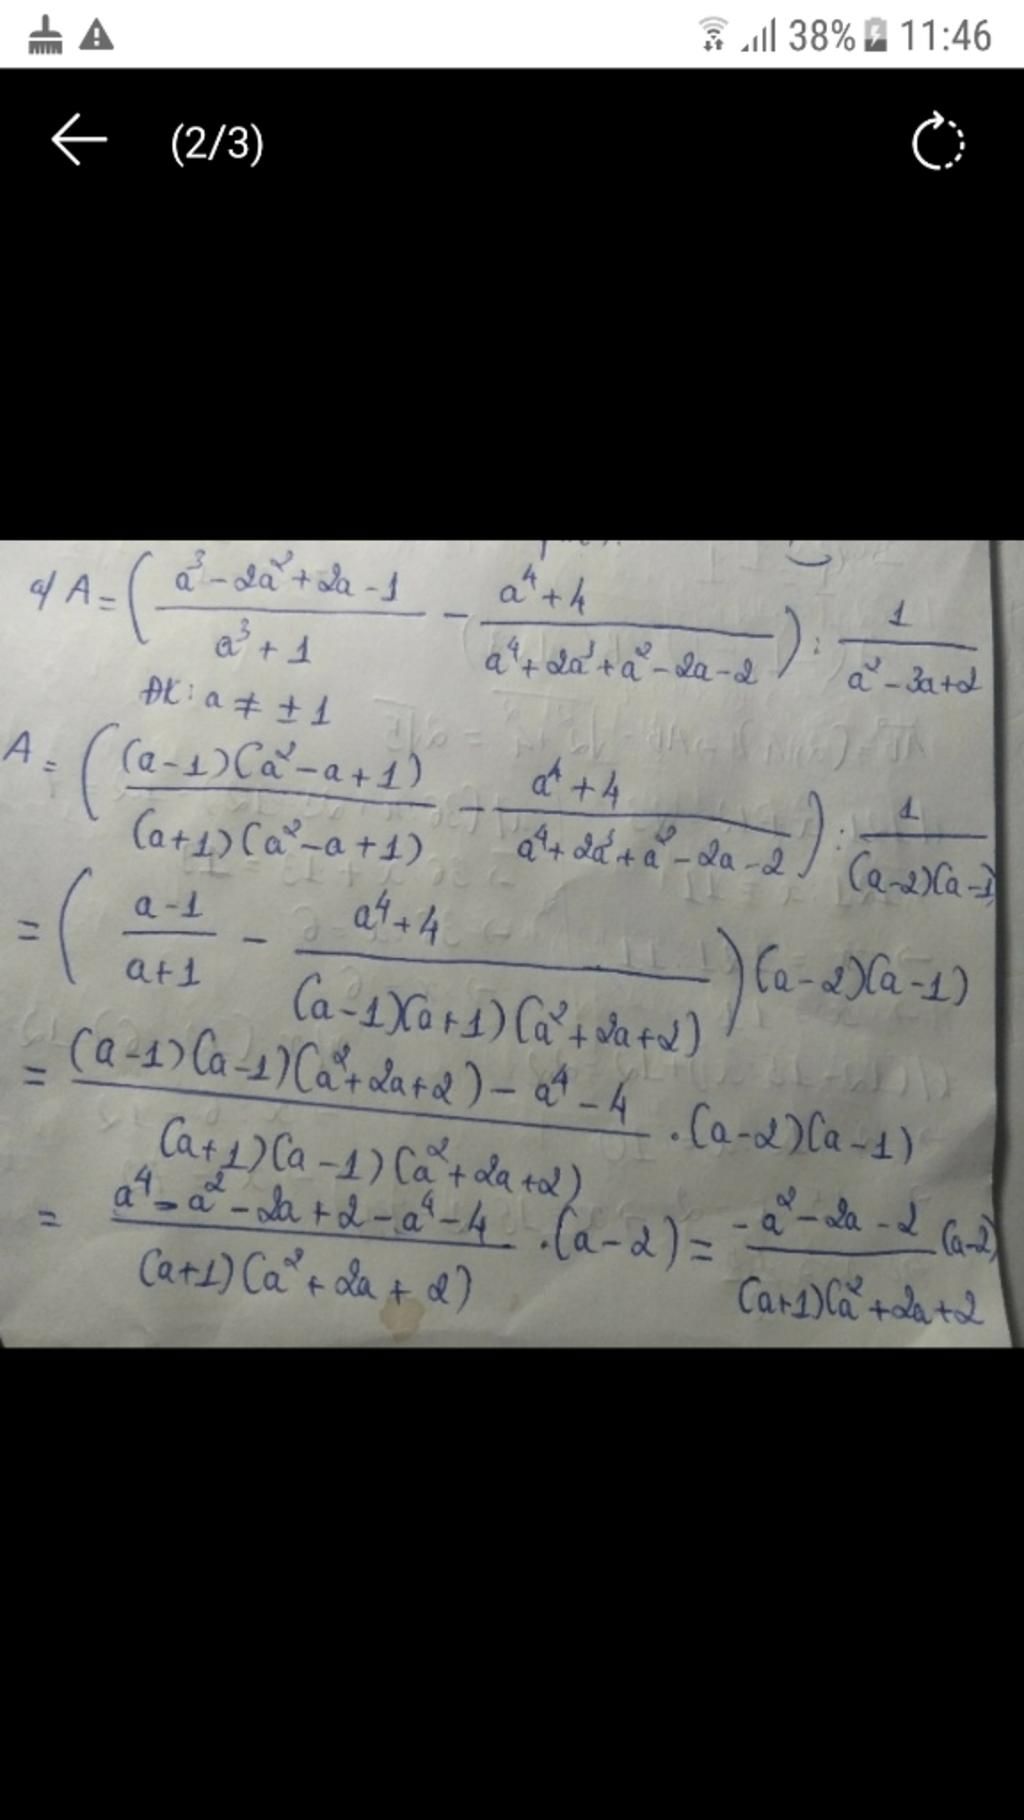 38% 11:46
(2/3)
a/ A = ( (a³ - 2a² + 2a - 1)/(a³ + 1) - (a⁴ + 4)/(a⁴ + 2a³ + a² - 2a - 2) ) : 1/(a² - 3a + 2)
ĐK: a ≠ ± 1
A = ( (a-1)(a² - a + 1)/(a+1)(a² - a + 1) - (a⁴ + 4)/(a⁴ + 2a³ + a² - 2a - 2) ) : 1/(a-2)(a-1)
= ( (a-1)/(a+1) - (a⁴ + 4)/(a-1)(a+1)(a² + 2a + 2) ) (a-2)(a-1)
= ((a-1)(a-1)(a² + 2a + 2) - a⁴ - 4)/(a+1)(a-1)(a² + 2a + 2) . (a-2)(a-1)
= (a⁴ - a² - 2a + 2 - a⁴ - 4)/(a+1)(a² + 2a + 2) . (a-2) = (-a² - 2a - 2)/(a+1)(a² + 2a + 2 (a-2)